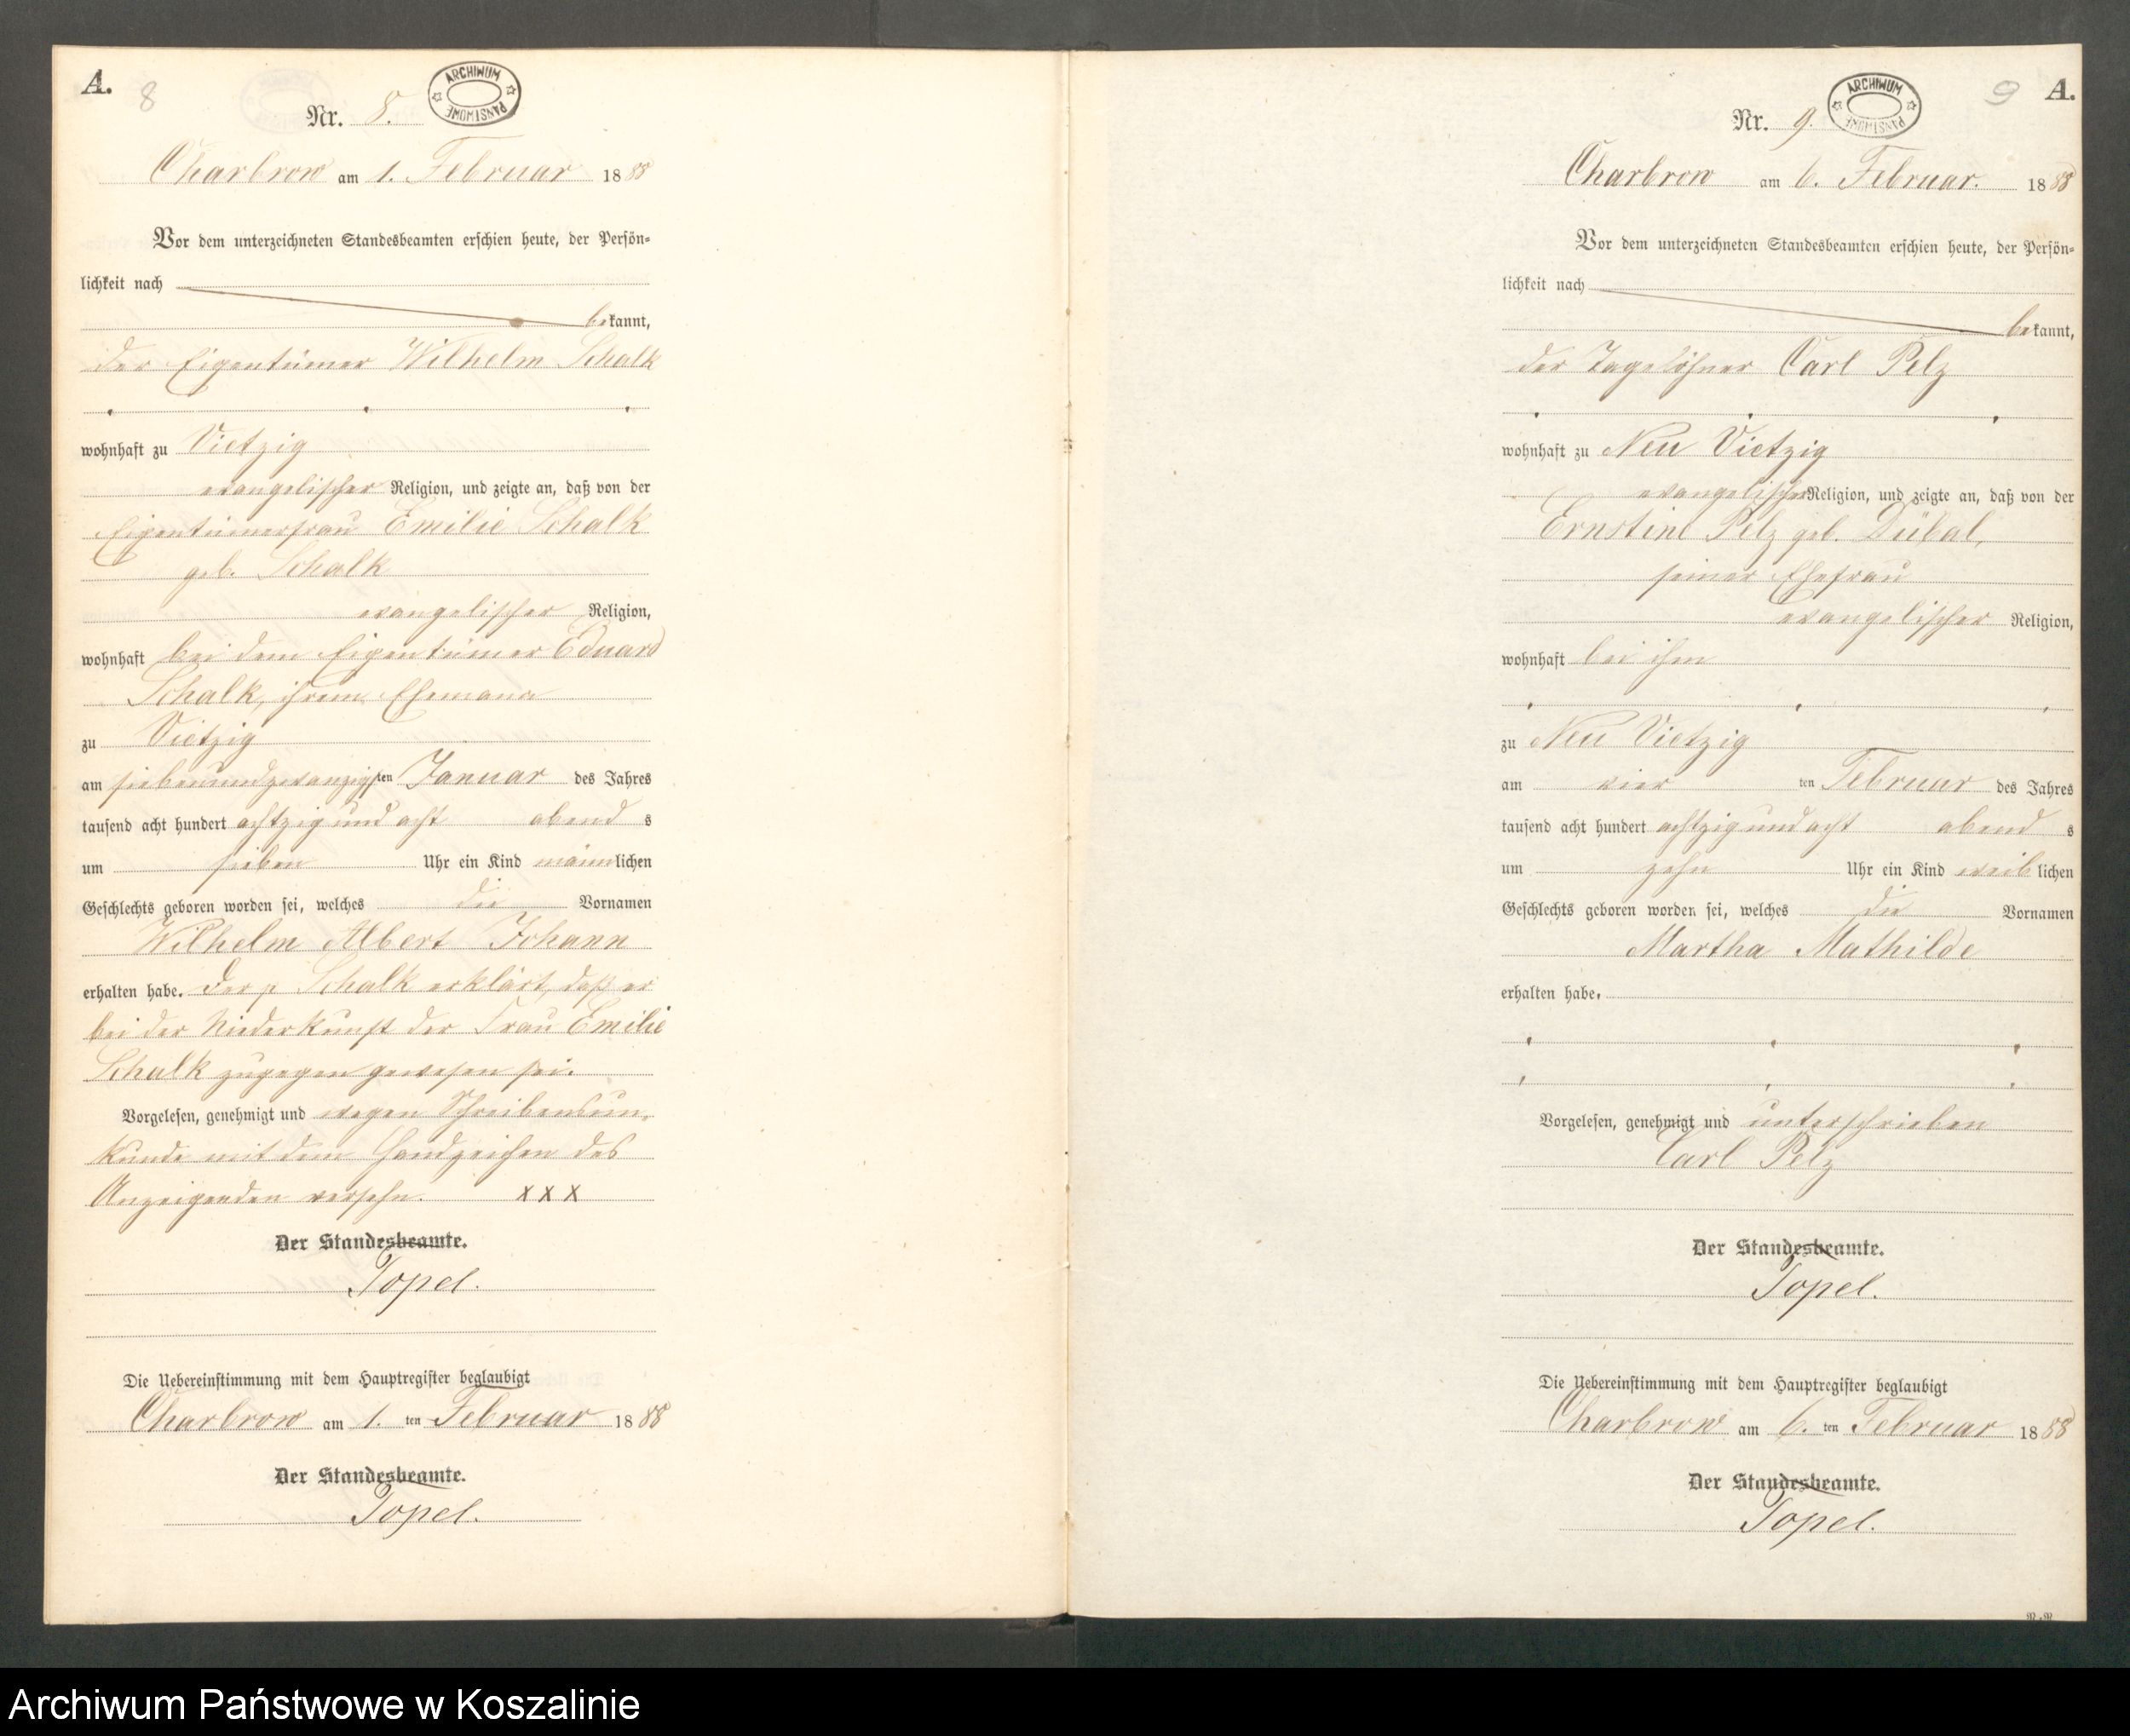 A. 8
ARCHIWUM PAŃSTWOWE
Nr. 8.
Charbrow am 1. Februar 1888
Vor dem unterzeichneten Standesbeamten erschien heute, der Persön-
lichkeit nach
bekannt,
der Eigentümer Wilhelm Schalk
wohnhaft zu Vietzig
evangelischer Religion, und zeigte an, daß von der
Eigentümerfrau Emilie Schalk
geb. Schalk
evangelischer Religion,
wohnhaft bei dem Eigentümer Eduard
Schalk, ihrem Ehemann
zu Vietzig
am siebenundzwanzigsten Januar des Jahres
tausend acht hundert achtzig und acht abends
um sieben Uhr ein Kind männlichen
Geschlechts geboren worden sei, welches die Vornamen
Wilhelm Albert Johann
erhalten habe. Der p Schalk erklärt, daß er
bei der Niederkunft der Frau Emilie
Schalk zugegen gewesen sei.
Vorgelesen, genehmigt und wegen Schreibensun-
kunde mit dem Handzeichen des
Anzeigenden versehn. XXX
Der Standesbeamte.
Topel.
Die Uebereinstimmung mit dem Hauptregister beglaubigt
Charbrow am 1. ten Februar 1888
Der Standesbeamte.
Topel.
9 A.
ARCHIWUM PAŃSTWOWE
Nr. 9.
Charbrow am 6. Februar. 1888
Vor dem unterzeichneten Standesbeamten erschien heute, der Persön-
lichkeit nach
bekannt,
der Tagelöhner Carl Pelz
wohnhaft zu Neu Vietzig
evangelischer Religion, und zeigte an, daß von der
Ernstine Pelz geb. Dübal,
seiner Ehefrau
evangelischer Religion,
wohnhaft bei ihm
zu Neu Vietzig
am vier ten Februar des Jahres
tausend acht hundert achtzig und acht abends
um zehn Uhr ein Kind weiblichen
Geschlechts geboren worden sei, welches die Vornamen
Martha Mathilde
erhalten habe.
Vorgelesen, genehmigt und unterschrieben
Carl Pelz
Der Standesbeamte.
Topel.
Die Uebereinstimmung mit dem Hauptregister beglaubigt
Charbrow am 6. ten Februar 1888
Der Standesbeamte.
Topel.
Archiwum Państwowe w Koszalinie